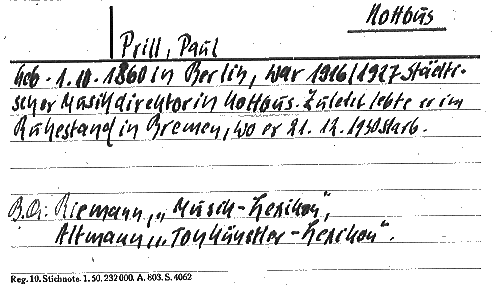 Kottbus
Prill, Paul
geb. 1.10.1860 in Berlin, war 1916/1927 Städti-
scher Musikdirektor in Kottbus. Zuletzt lebte er im
Ruhestand in Bremen, wo er 21.12.1930 starb.
B.Qu: Riemann, „Musik-Lexikon",
Altmann „Tonkünstler-Lexikon".
Reg. 10. Stichnote. 1. 50. 232 000. A. 803. S. 4062